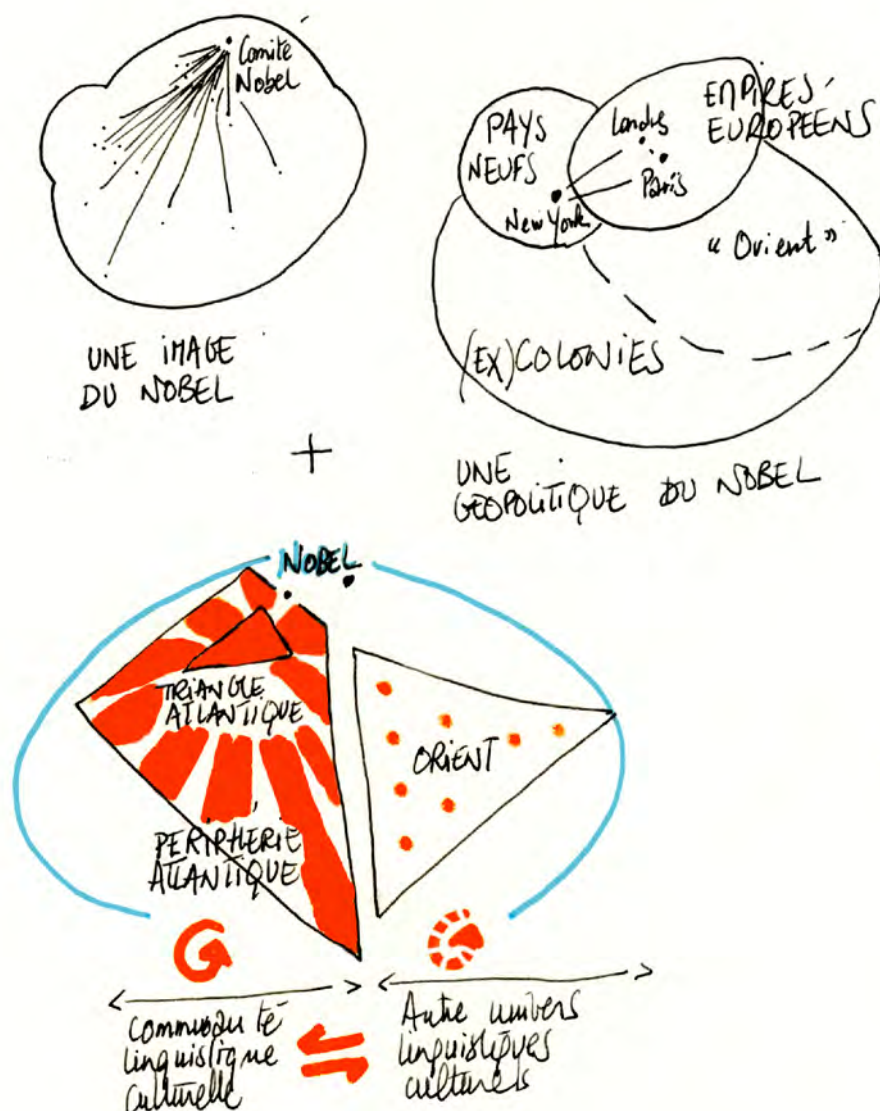 Comité
Nobel
UNE IMAGE
DU NOBEL
PAYS
NEUFS
New York
Londres
Paris
EMPIRES
EUROPEENS
« Orient »
(EX)COLONIES
UNE
GEOPOLITIQUE DU NOBEL
+
NOBEL
TRIANGLE
ATLANTIQUE
PÉRIPHERIE
ATLANTIQUE
ORIENT
Communauté
linguistique
culturelle
Autre univers
linguistiques
culturels